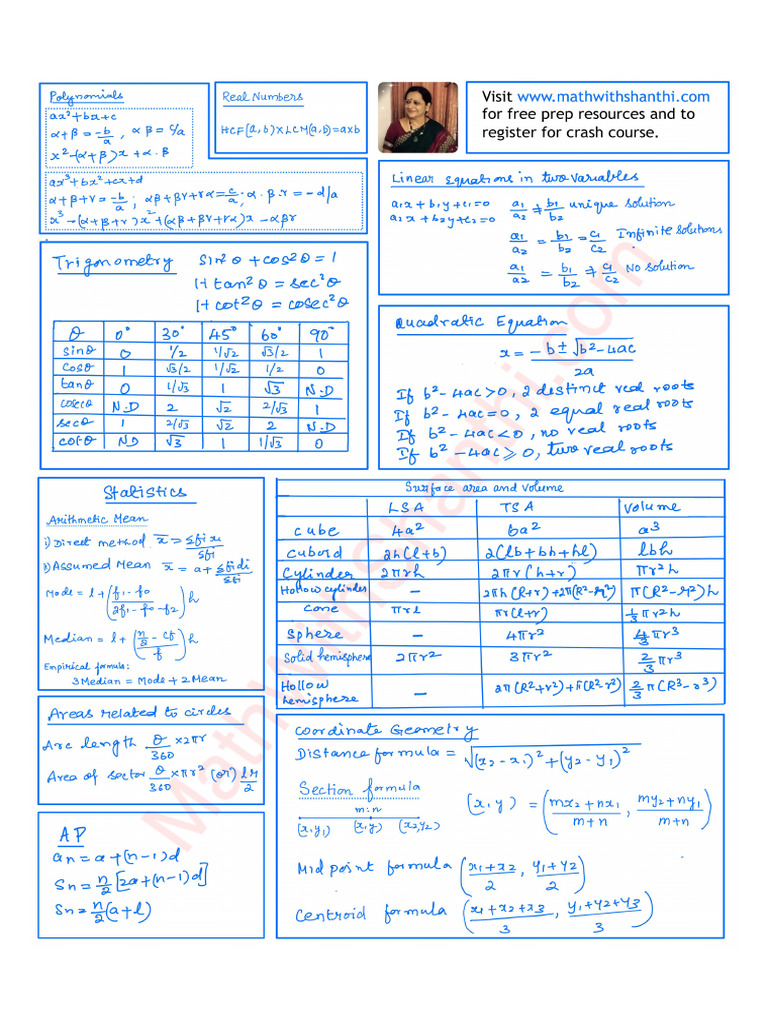 Polynomials
ax²+bx+c
α+β = -b/a , αβ = c/a
x²-(α+β)x + α.β
ax³+bx²+cx+d
α+β+r = -b/a ; αβ+βr+rα = c/a . α.β.r = -d/a
x³-(α+β+r)x²+(αβ+βr+rα)x - αβr
Real Numbers
HCF(a,b)×LCM(a,b)=a×b
Visit www.mathwithshanthi.com
for free prep resources and to
register for crash course.
Linear Equations in two variables
a₁x+b₁y+c₁=0
a₂x+b₂y+c₂=0
a₁/a₂ ≠ b₁/b₂ unique solution
a₁/a₂ = b₁/b₂ = c₁/c₂ Infinite solutions
a₁/a₂ = b₁/b₂ ≠ c₁/c₂ No solution
Trigonometry
sin²θ + cos²θ = 1
1+tan²θ = sec²θ
1+cot²θ = cosec²θ
θ 0° 30° 45° 60° 90°
sinθ 0 1/2 1/√2 √3/2 1
cosθ 1 √3/2 1/√2 1/2 0
tanθ 0 1/√3 1 √3 N.D
cosecθ N.D 2 √2 2/√3 1
secθ 1 2/√3 √2 2 N.D
cotθ ND √3 1 1/√3 0
Quadratic Equation
x = -b ± √b²-4ac / 2a
If b²-4ac>0, 2 distinct real roots
If b²-4ac=0, 2 equal real roots
If b²-4ac<0, no real roots
If b²-4ac ≥ 0, two real roots
Statistics
Arithmetic Mean
i) Direct method x̄ = Σfixi/Σfi
ii) Assumed Mean x̄ = a + Σfidi/Σfi
Mode = l + (f₁-f₀/2f₁-f₀-f₂)h
Median = l + (n/2 - cf/f)h
Empirical formula:
3 Median = Mode + 2 Mean
Surface area and volume
LSA TSA Volume
cube 4a² 6a² a³
cuboid 2h(l+b) 2(lb+bh+hl) lbh
Cylinder 2πrh 2πr(h+r) πr²h
Hollow cylinder - 2πh(R+r)+2π(R²-r²) π(R²-r²)h
Cone πrl πr(l+r) 1/3 πr²h
Sphere - 4πr² 4/3 πr³
Solid hemisphere 2πr² 3πr² 2/3 πr³
Hollow hemisphere - 2π(R²+r²)+π(R²-r²) 2/3 π(R³-r³)
Areas related to circles
Arc length θ/360 × 2πr
Area of sector θ/360 × πr² (or) lr/2
AP
an = a+(n-1)d
Sn = n/2[2a+(n-1)d]
Sn = n/2(a+l)
Coordinate Geometry
Distance formula = √(x₂-x₁)²+(y₂-y₁)²
Section formula
m:n
(x₁y₁) (x,y) (x₂y₂)
(x,y) = (mx₂+nx₁/m+n , my₂+ny₁/m+n)
Mid point formula (x₁+x₂/2 , y₁+y₂/2)
Centroid formula (x₁+x₂+x₃/3 , y₁+y₂+y₃/3)
Mathwithshanthi.com